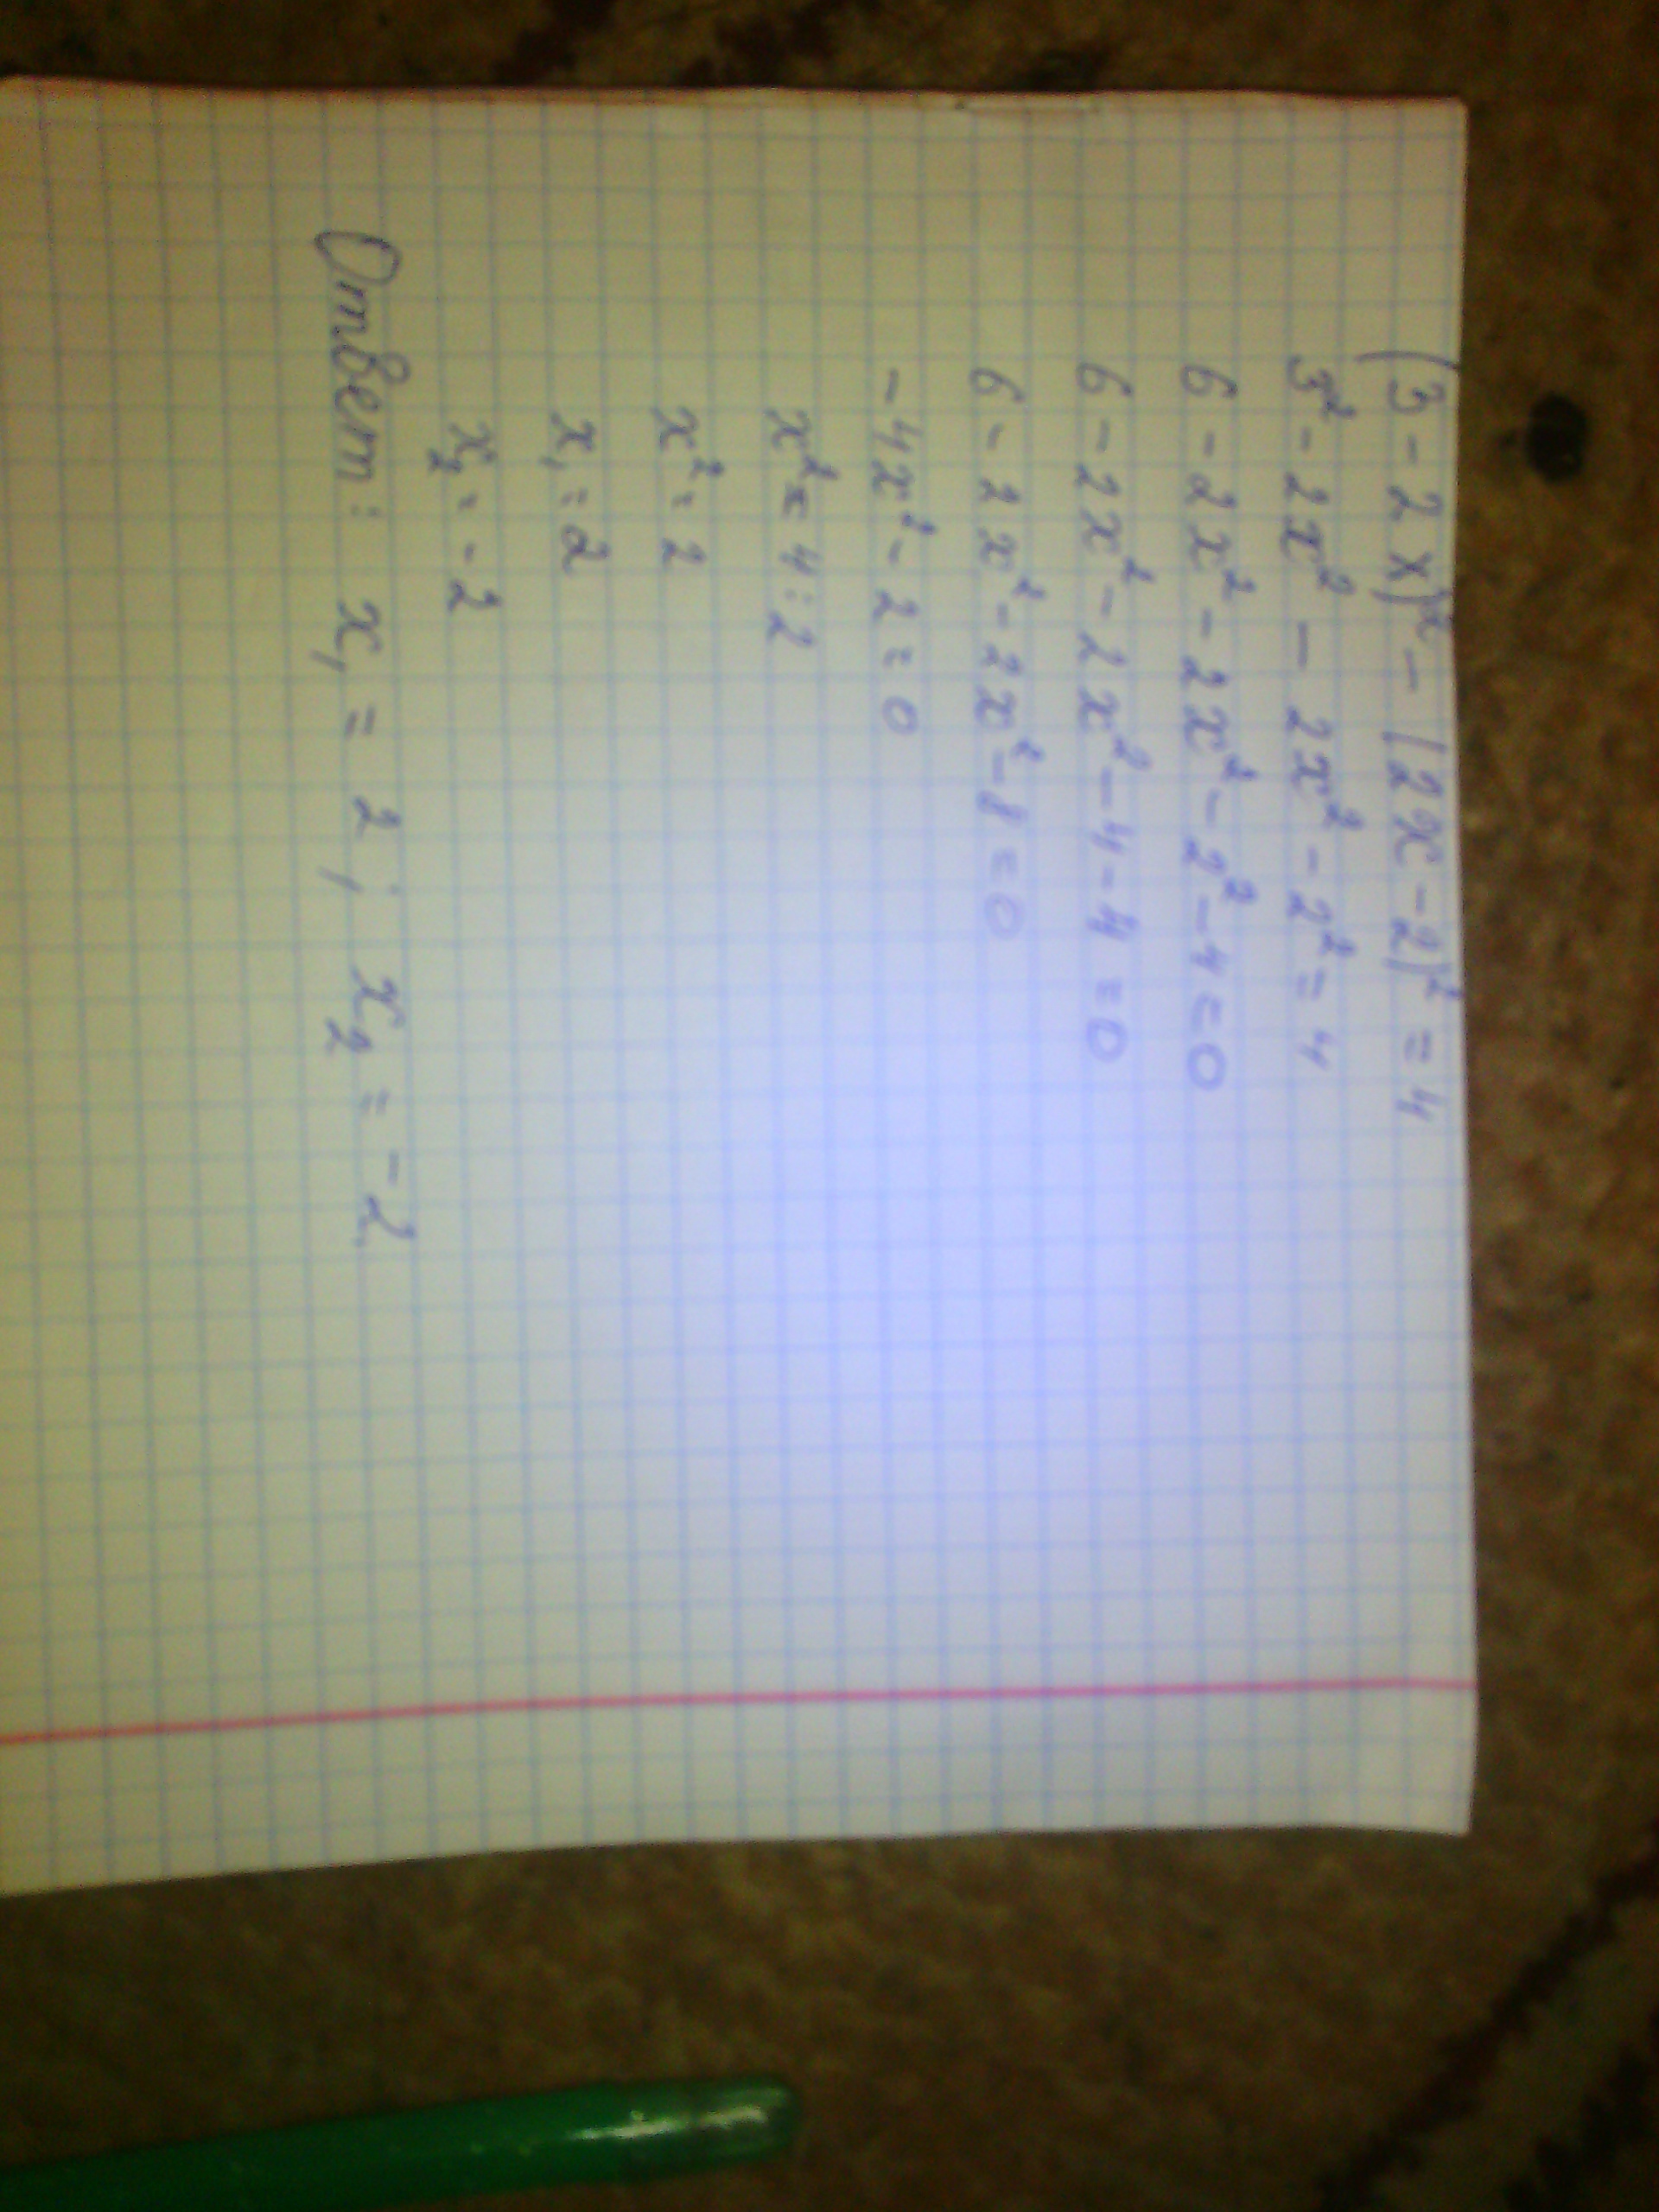 (3-2x)² - (2x-2)² = 4
3² - 2x² - 2x² - 2² = 4
6 - 2x² - 2x² - 2² - 4 = 0
6 - 2x² - 2x² - 4 - 4 = 0
6 - 2x² - 2x² - 8 = 0
-4x² - 2 = 0
x² = 4 : 2
x² = 2
x₁ = 2
x₂ = -2
Ответ: x₁ = 2; x₂ = -2.